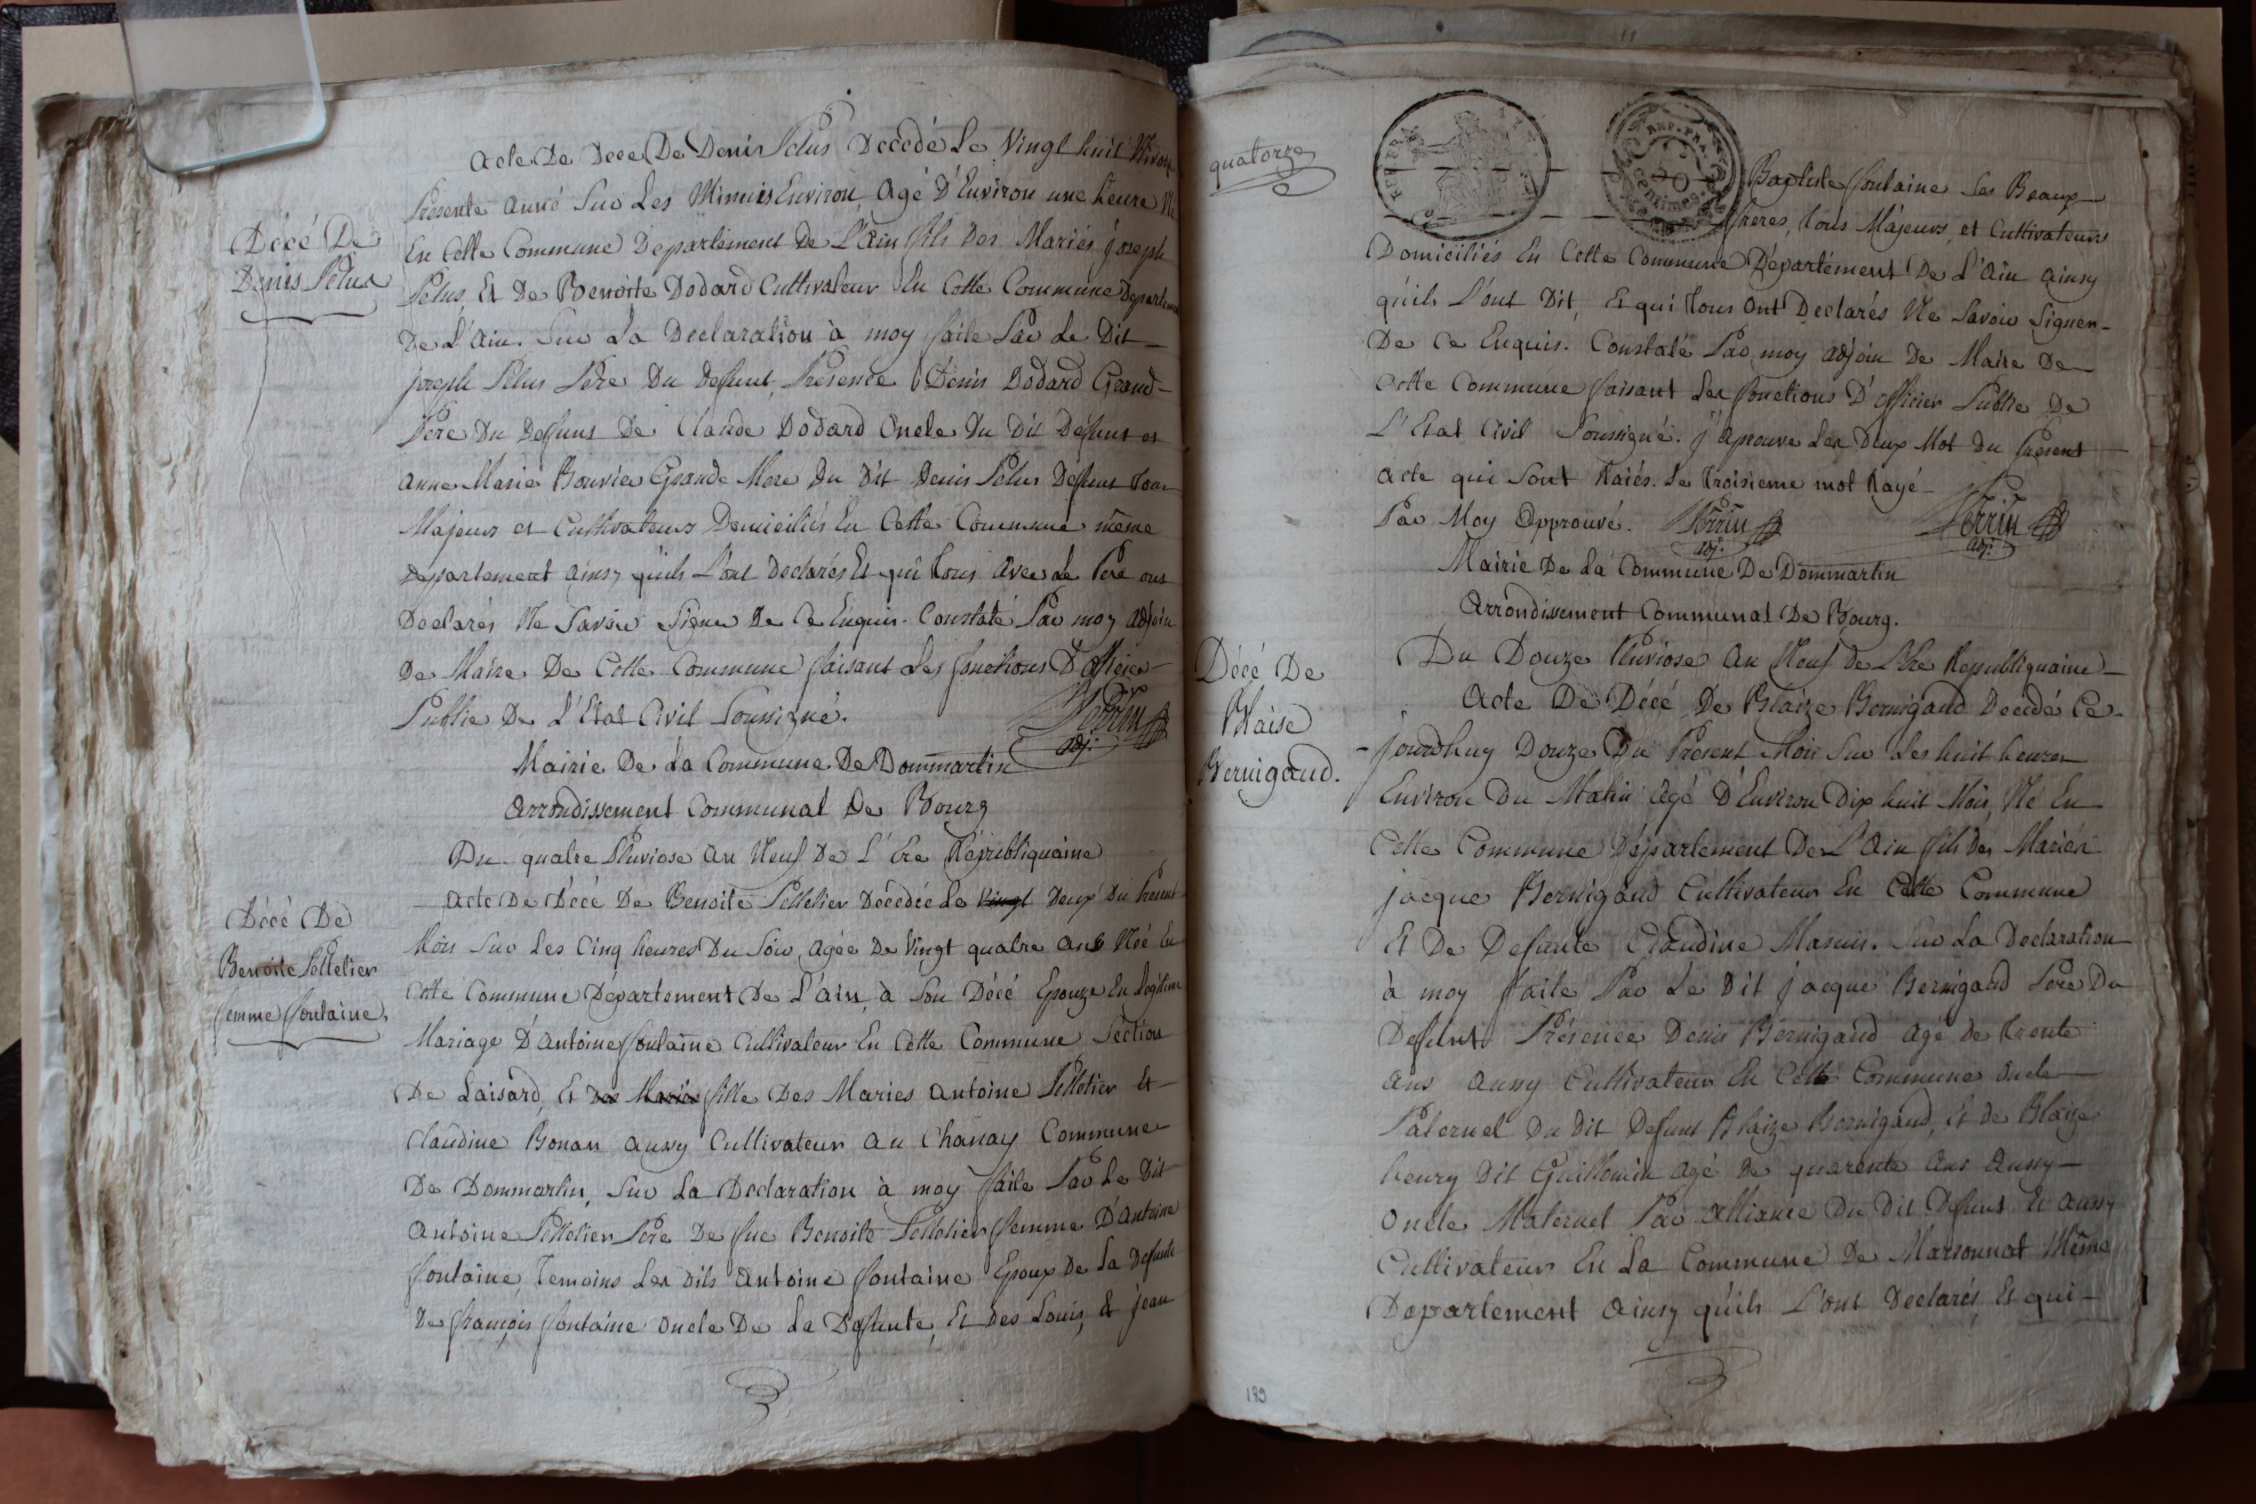 Acte De Dece De Denis Pelus Décédé Le Vingt huit Nivose
Presente anné Sur Les Minuis Environ, Agé D'Environ une heure Né
En Cette Commune Département de L'Ain fils Des Mariés joseph
Pelus, Et De Benoite Dodard Cultivateur En Cette Commune Departement
De L'Ain. Sur La Declaration à moy faite Par Le Dit
joseph Pelus Pere Du Defunt, Presence Denis Dodard Grand-
Pere Du Defunt De Claude Dodard Oncle Du Dit Defunt et
Anne Marie Bouvier Grande Mere Du Dit Denis Pelus Défunt Tous
Majeurs et Cultivateurs Domiciliés En Cette Commune même
Departement ainsy quils L'ont Declarés Et qui tous Avec Le Pere ont
Declarés Ne Savoir Signer De Ce Enquis. Constaté Par moy adjoin
De Maire De Cette Commune faisant Les fonctions D'officier
Public De L'Etat Civil Soussigné.
Perrin
adj.
Décé De
Denis Pelus
Mairie De La Commune De Dommartin
Arrondissement Communal De Bourg
Du quatre Pluviose An Neuf De L'Ere Républiquaine
Décé De
Benoite Pelletier
femme fontaine.
Acte De Décé De Benoite Pelletier Décédée Le Vingt Deux Du Present
Mois Sur Les Cinq heures Du Soir, Agée De Vingt quatre ans Née En
Cette Commune Département De L'Ain, à Son Décé Epouze En Légitime
Mariage D'Antoine fontaine Cultivateur En Cette Commune Section
De Laisard, Et Des Mariés fille Des Maries Antoine Pelletier Et
Claudine Bonan aussy Cultivateur Au Chanay Commune
De Dommartin, Sur La Declaration à moy faite Par Le Dit
Antoine Pelletier Pere De fue Benoite Pelletier femme D'Antoine
fontaine, Temoins Les Dits Antoine fontaine Epoux De La Defunte
De françois fontaine Oncle De La Défunte, Et Des Louis, Et jean
quatorze
REP. FRA.
50
CENTIMES
Baptiste fontaine Ses Beaux
freres, tous Majeurs, et Cultivateurs
Domiciliés En Cette Commune Département De L'Ain ainsy
qu'ils L'ont Dit, Et qui tous ont Declarés Ne Savoir Signer
De Ce Enquis. Constaté Par moy adjoin De Maire De
Cette Commune faisant Les fonctions D'officier Public De
L'Etat Civil Soussigné. J'aprouve Les Deux Mot Du Présent
Acte qui Sont Raiés. Le troisieme mot Rayé
Par Moy Approuvé. Perrin Perrin
adj. adj.
Mairie De La Commune De Dommartin
Arrondissement Communal De Bourg.
Du Douze Pluviose An Neuf de L'Ere Republiquaine
Décé De
Blaise
Bernigaud.
Acte De Décé De Blaize Bernigaud Decedé Ce
jourdhuy Douze Du Présent Mois Sur Les huit heures
Environ Du Matin Agé D'Environ Dix huit Mois, Né En
Cette Commune Département De L'Ain fils Des Mariés
jacque Bernigaud Cultivateur En Cette Commune
Et De Defunte Claudine Masuis. Sur La Declaration
à moy faite Par Le Dit jacque Bernigaud Pere Du
Defunt. Présence Denis Bernigaud agé de trente
ans aussy Cultivateur En Cette Commune oncle
Paternel Du Dit Defunt Blaize Bernigaud, Et de Blaize
henry Dit Guillomin agé de quarente ans aussy
Oncle Maternel Par Alliance Du Dit Defunt Et aussy
Cultivateur En La Commune De Marsonnat Même
Departement Ainsy qu'ils L'ont Declarés, Et qui
189